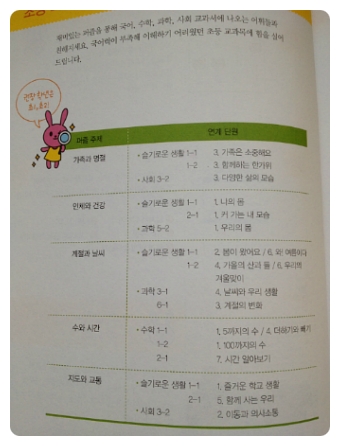 재미있는 퍼즐을 통해 국어, 수학, 과학, 사회 교과서에 나오는 어휘들과
친해지세요. 국어력이 부족해 이해하기 어려웠던 초등 교과목에 힘을 실어
드립니다.
관련 학년은
퍼즐 주제 연계 단원
가족과 명절 • 슬기로운 생활 1-1 3. 가족은 소중해요
1-2 3. 함께하는 한가위
• 사회 3-2 3. 다양한 삶의 모습
인체와 건강 • 슬기로운 생활 1-1 1. 나의 몸
2-1 1. 커 가는 내 모습
• 과학 5-2 1. 우리의 몸
계절과 날씨 • 슬기로운 생활 1-1 2. 봄이 왔어요 / 6. 와! 여름이다
1-2 4. 가을의 산과 들 / 6. 우리의
겨울맞이
• 과학 3-1 4. 날씨와 우리 생활
6-1 3. 계절의 변화
수와 시간 • 수학 1-1 1. 5까지의 수 / 4. 더하기와 빼기
1-2 1. 100까지의 수
2-1 7. 시간 알아보기
지도와 교통 • 슬기로운 생활 1-1 1. 즐거운 학교 생활
2-1 5. 함께 사는 우리
• 사회 3-2 2. 이동과 의사소통